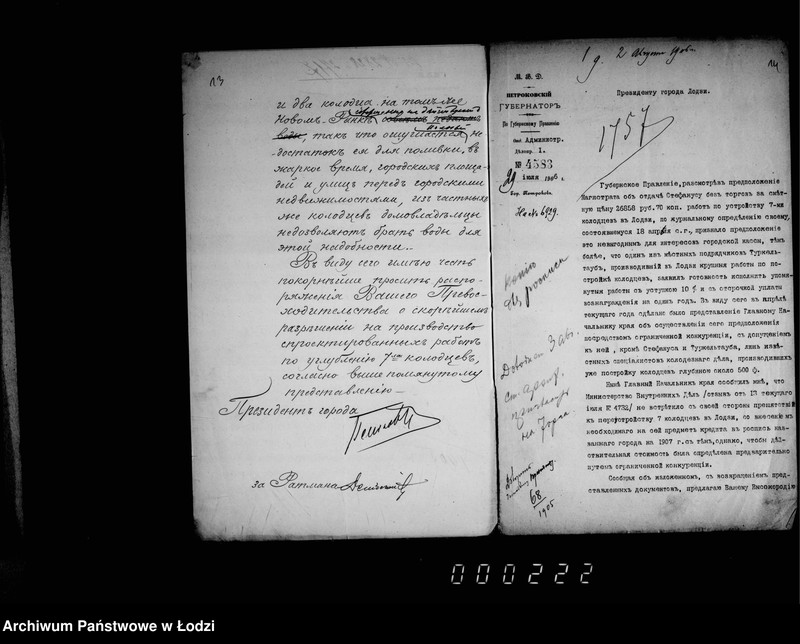 13
и два колодца на томъ же
Новомъ-Рынкѣ,
воды, такъ что ощущается не-
достатокъ ея для поливки, въ
жаркое время, городскихъ площа-
дей и улицъ передъ городскими
недвижимостями, изъ частныхъ
же колодцевъ домовладѣльцы
недозволяютъ брать воды для
этой надобности.
Въ виду сего имѣю честь
покорнѣйше просить распо-
ряженія Вашего Превос-
ходительства о скорѣйшемъ
разрѣшеніи на производство
спроектированныхъ работъ
по углубленію 7ми колодцевъ,
согласно выше помянутому
представленію
Президентъ города
за Ратмана
14
2 Августа 1906
М. В. Д.
ПЕТРОКОВСКІЙ
ГУБЕРНАТОРЪ
По Губернскому Правленію
Отд. Администр.
Дѣлопр. 1.
№ 4583
29 іюля 1906 г.
Гор. Петроковъ.
На № 6929
Президенту города Лодзи.
1757
Губернское Правленіе, разсмотрѣвъ предположеніе
Магистрата объ отдачѣ Стефанусу безъ торговъ на смѣт-
ную цѣну 26858 руб. 70 коп. работъ по устройству 7-ми
колодцевъ въ Лодзи, по журнальному опредѣленію своему,
состоявшемуся 18 апрѣля с.г., признало предположеніе
это невыгоднымъ для интересовъ городской кассы, тѣмъ
болѣе, что одинъ изъ мѣстныхъ подрядчиковъ Туркель-
таубъ, производившій въ Лодзи крупныя работы по по-
стройкѣ колодцевъ, заявилъ готовность исполнить упомя-
нутыя работы съ уступкою 10 % и съ отсрочкой уплаты
вознагражденія на одинъ годъ. Въ виду сего въ апрѣлѣ
текущаго года сдѣлано было представленіе Главному На-
чальнику края объ осуществленіи сего предположенія
посредствомъ ограниченной конкуренціи, съ допущеніемъ
къ ней, кромѣ Стефануса и Туркельтауба, лишь извѣ-
стныхъ спеціалистовъ колодезнаго дѣла, производившихъ
уже постройку колодцевъ глубиною около 500 ф.
Нынѣ Главный Начальникъ края сообщилъ мнѣ, что
Министерство Внутреннихъ Дѣлъ /отзывъ отъ 13 текущаго
іюля № 4732/ не встрѣтило съ своей стороны препятствій
къ переустройству 7 колодцевъ въ Лодзи, со внесеніемъ
необходимаго на сей предметъ кредита въ роспись наз-
ваннаго города на 1907 г. съ тѣмъ, однако, чтобы дѣй-
ствительная стоимость была опредѣлена предварительно
путемъ ограниченной конкуренціи.
Сообщая объ изложенномъ, съ возвращеніемъ пред-
ставленныхъ документовъ, предлагаю Вашему Высокородію
Копію
въ росписи
3 авг.
на Торги
68
1905
000222
Archiwum Państwowe w Łodzi